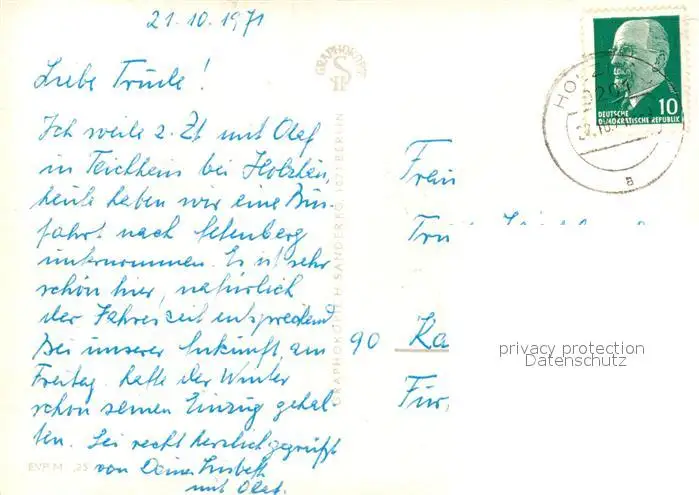 21.10.1971
Liebe Trude!
Ich weile z. Zt mit Olaf
in
heute haben wir eine Bus-
fahrt nach
unternommen. Es ist sehr
schön hier, natürlich
der Jahreszeit entsprechend
Bei unserer Ankunft, am
Freitag hatte der Winter
schon seinen Einzug gehal-
ten. Sei recht herzlich gegrüßt
von Deiner Lisbeth
mit Olaf.
EVP M -,25
GRAPHOKOPIE
GRAPHOKOPIE H. SANDER KG, 1071 BERLIN
10
DEUTSCHE
DEMOKRATISCHE REPUBLIK
a
Frau
90 Ka
privacy protection
Datenschutz